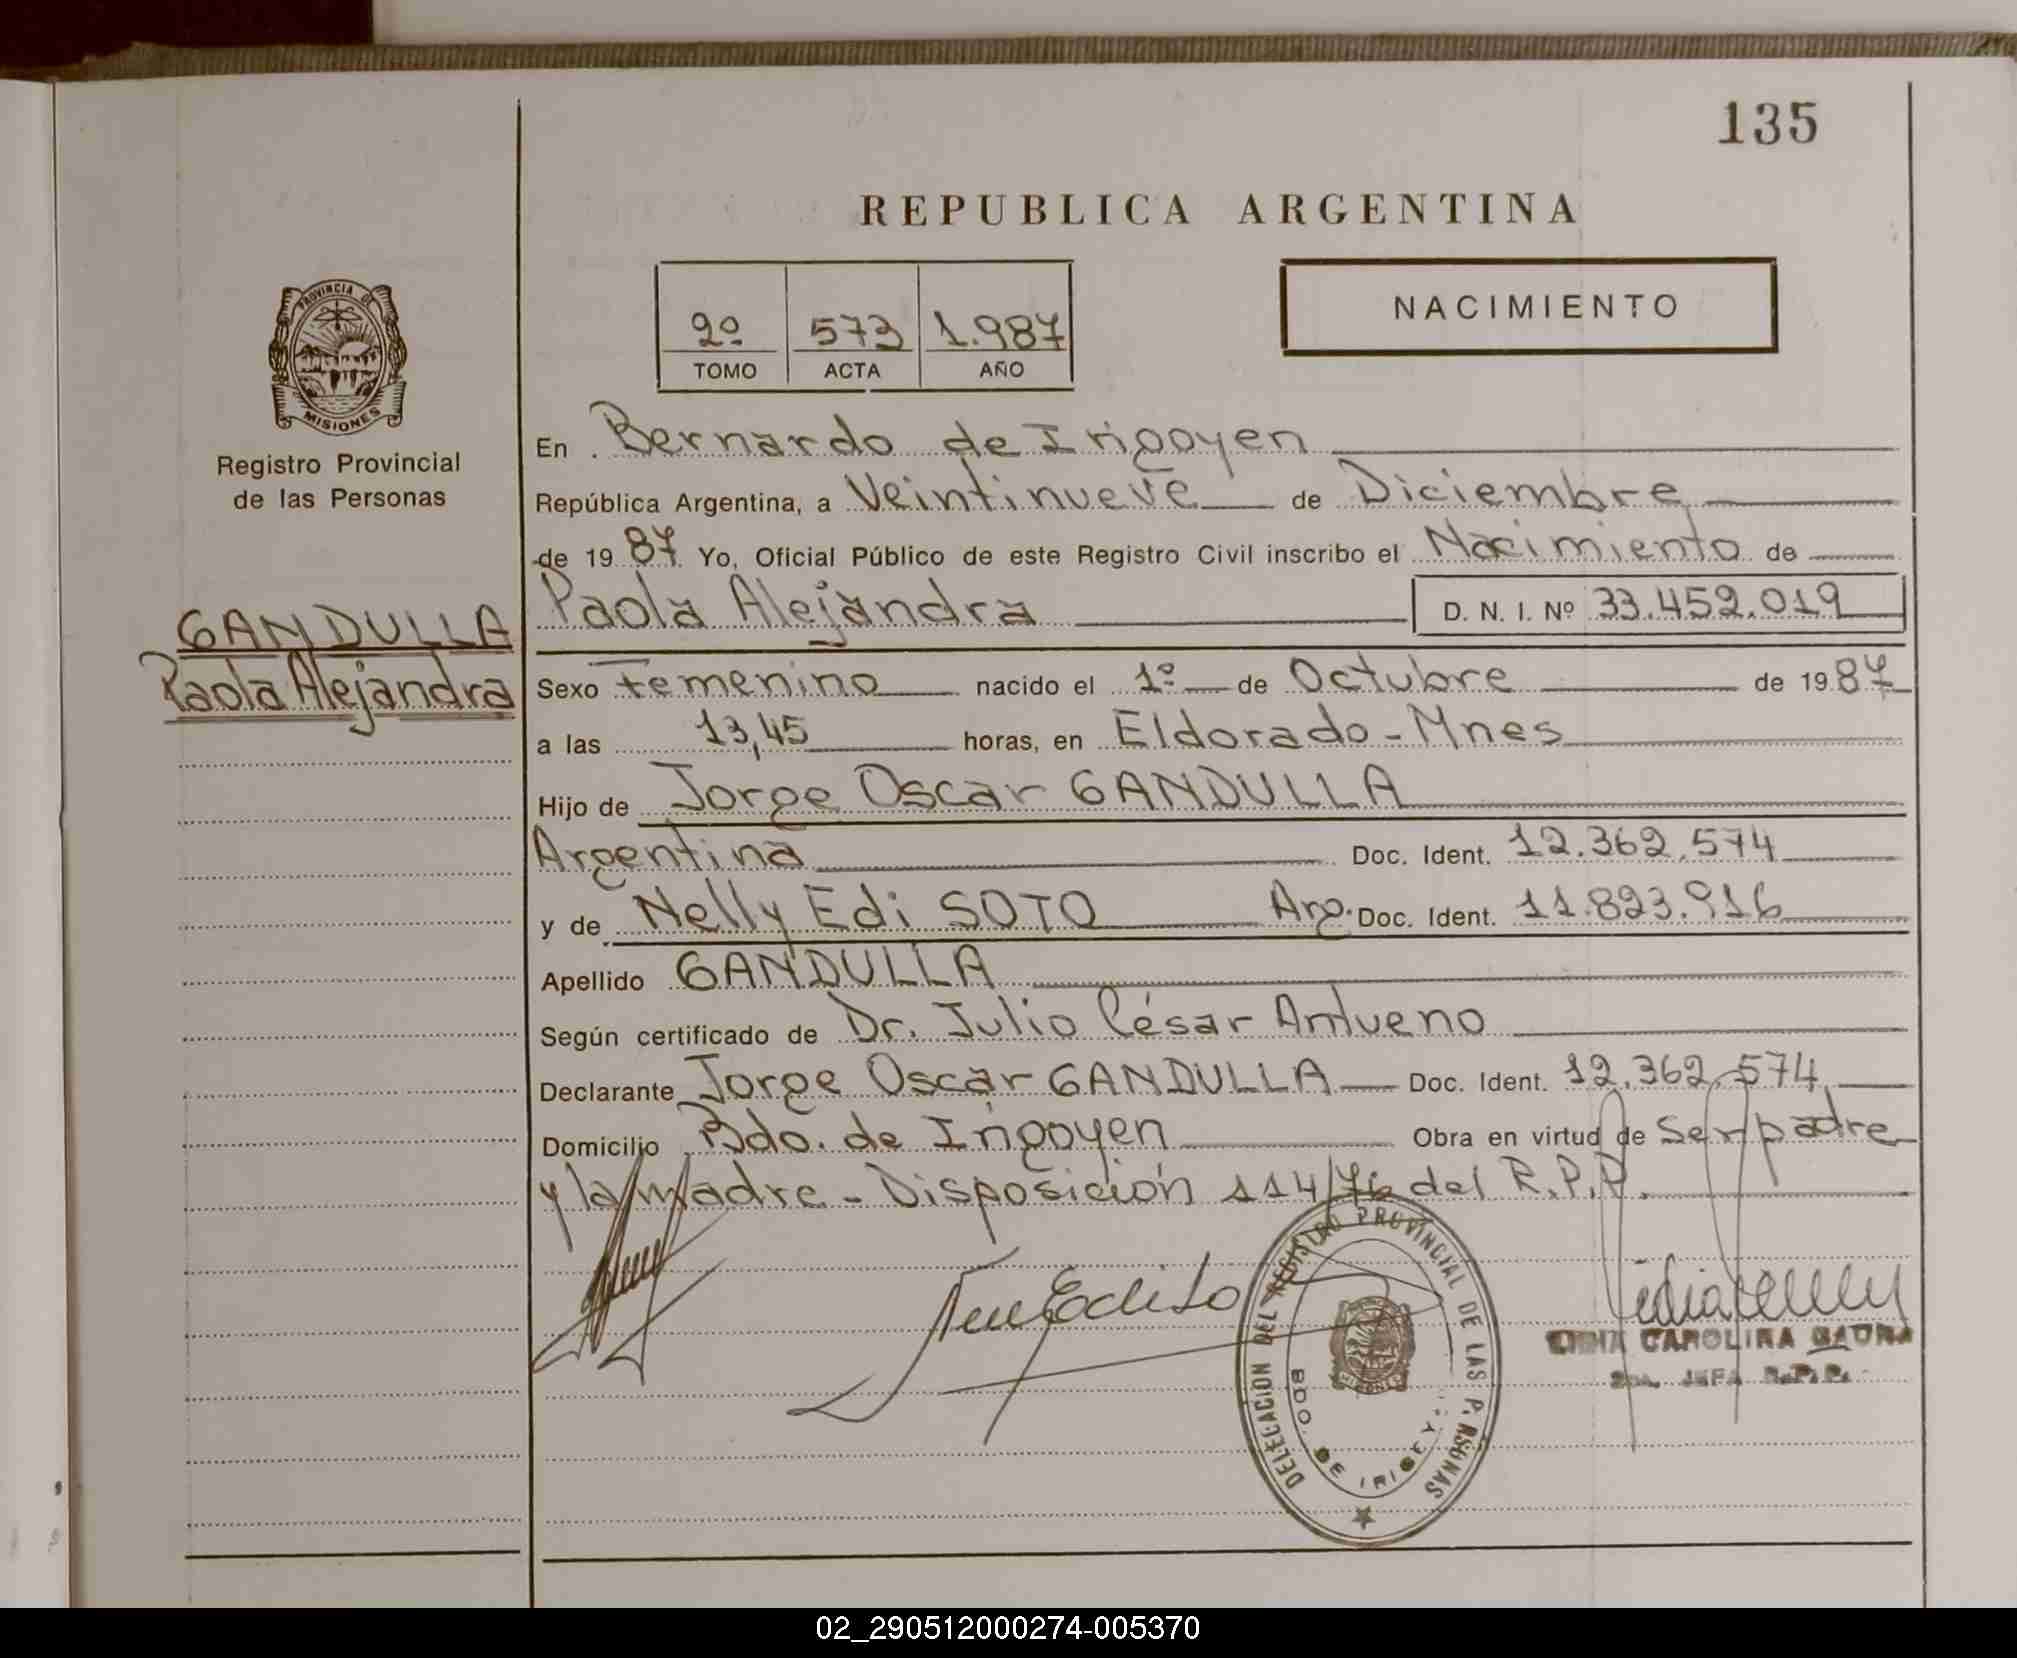 135
REPUBLICA ARGENTINA
PROVINCIA DE
MISIONES
Registro Provincial
de las Personas
2º 573 1.987
TOMO ACTA AÑO
NACIMIENTO
En Bernardo de Irigoyen
República Argentina, a Veintinueve de Diciembre
de 19 87 Yo, Oficial Público de este Registro Civil inscribo el Nacimiento de
GANDULLA
Paola Alejandra
Paola Alejandra D. N. I. Nº 33.452.019
Sexo Femenino nacido el 1º de Octubre de 19 87
a las 13,45 horas, en Eldorado - Mnes
Hijo de Jorge Oscar GANDULLA
Argentina Doc. Ident. 12.362.574
y de Nelly Edi SOTO Arg. Doc. Ident. 11.823.916
Apellido GANDULLA
Según certificado de Dr. Julio César
Declarante Jorge Oscar GANDULLA Doc. Ident. 12.362.574
Domicilio Bdo. de Irigoyen Obra en virtud de ser padre
y la madre - Disposición 114/76 del R.P.P.
DELEGACION DEL REGISTRO PROVINCIAL DE LAS PERSONAS
BDO. DE IRIGOY.
MISIONES
CAROLINA
JEFA R.P.P.
02_290512000274-005370